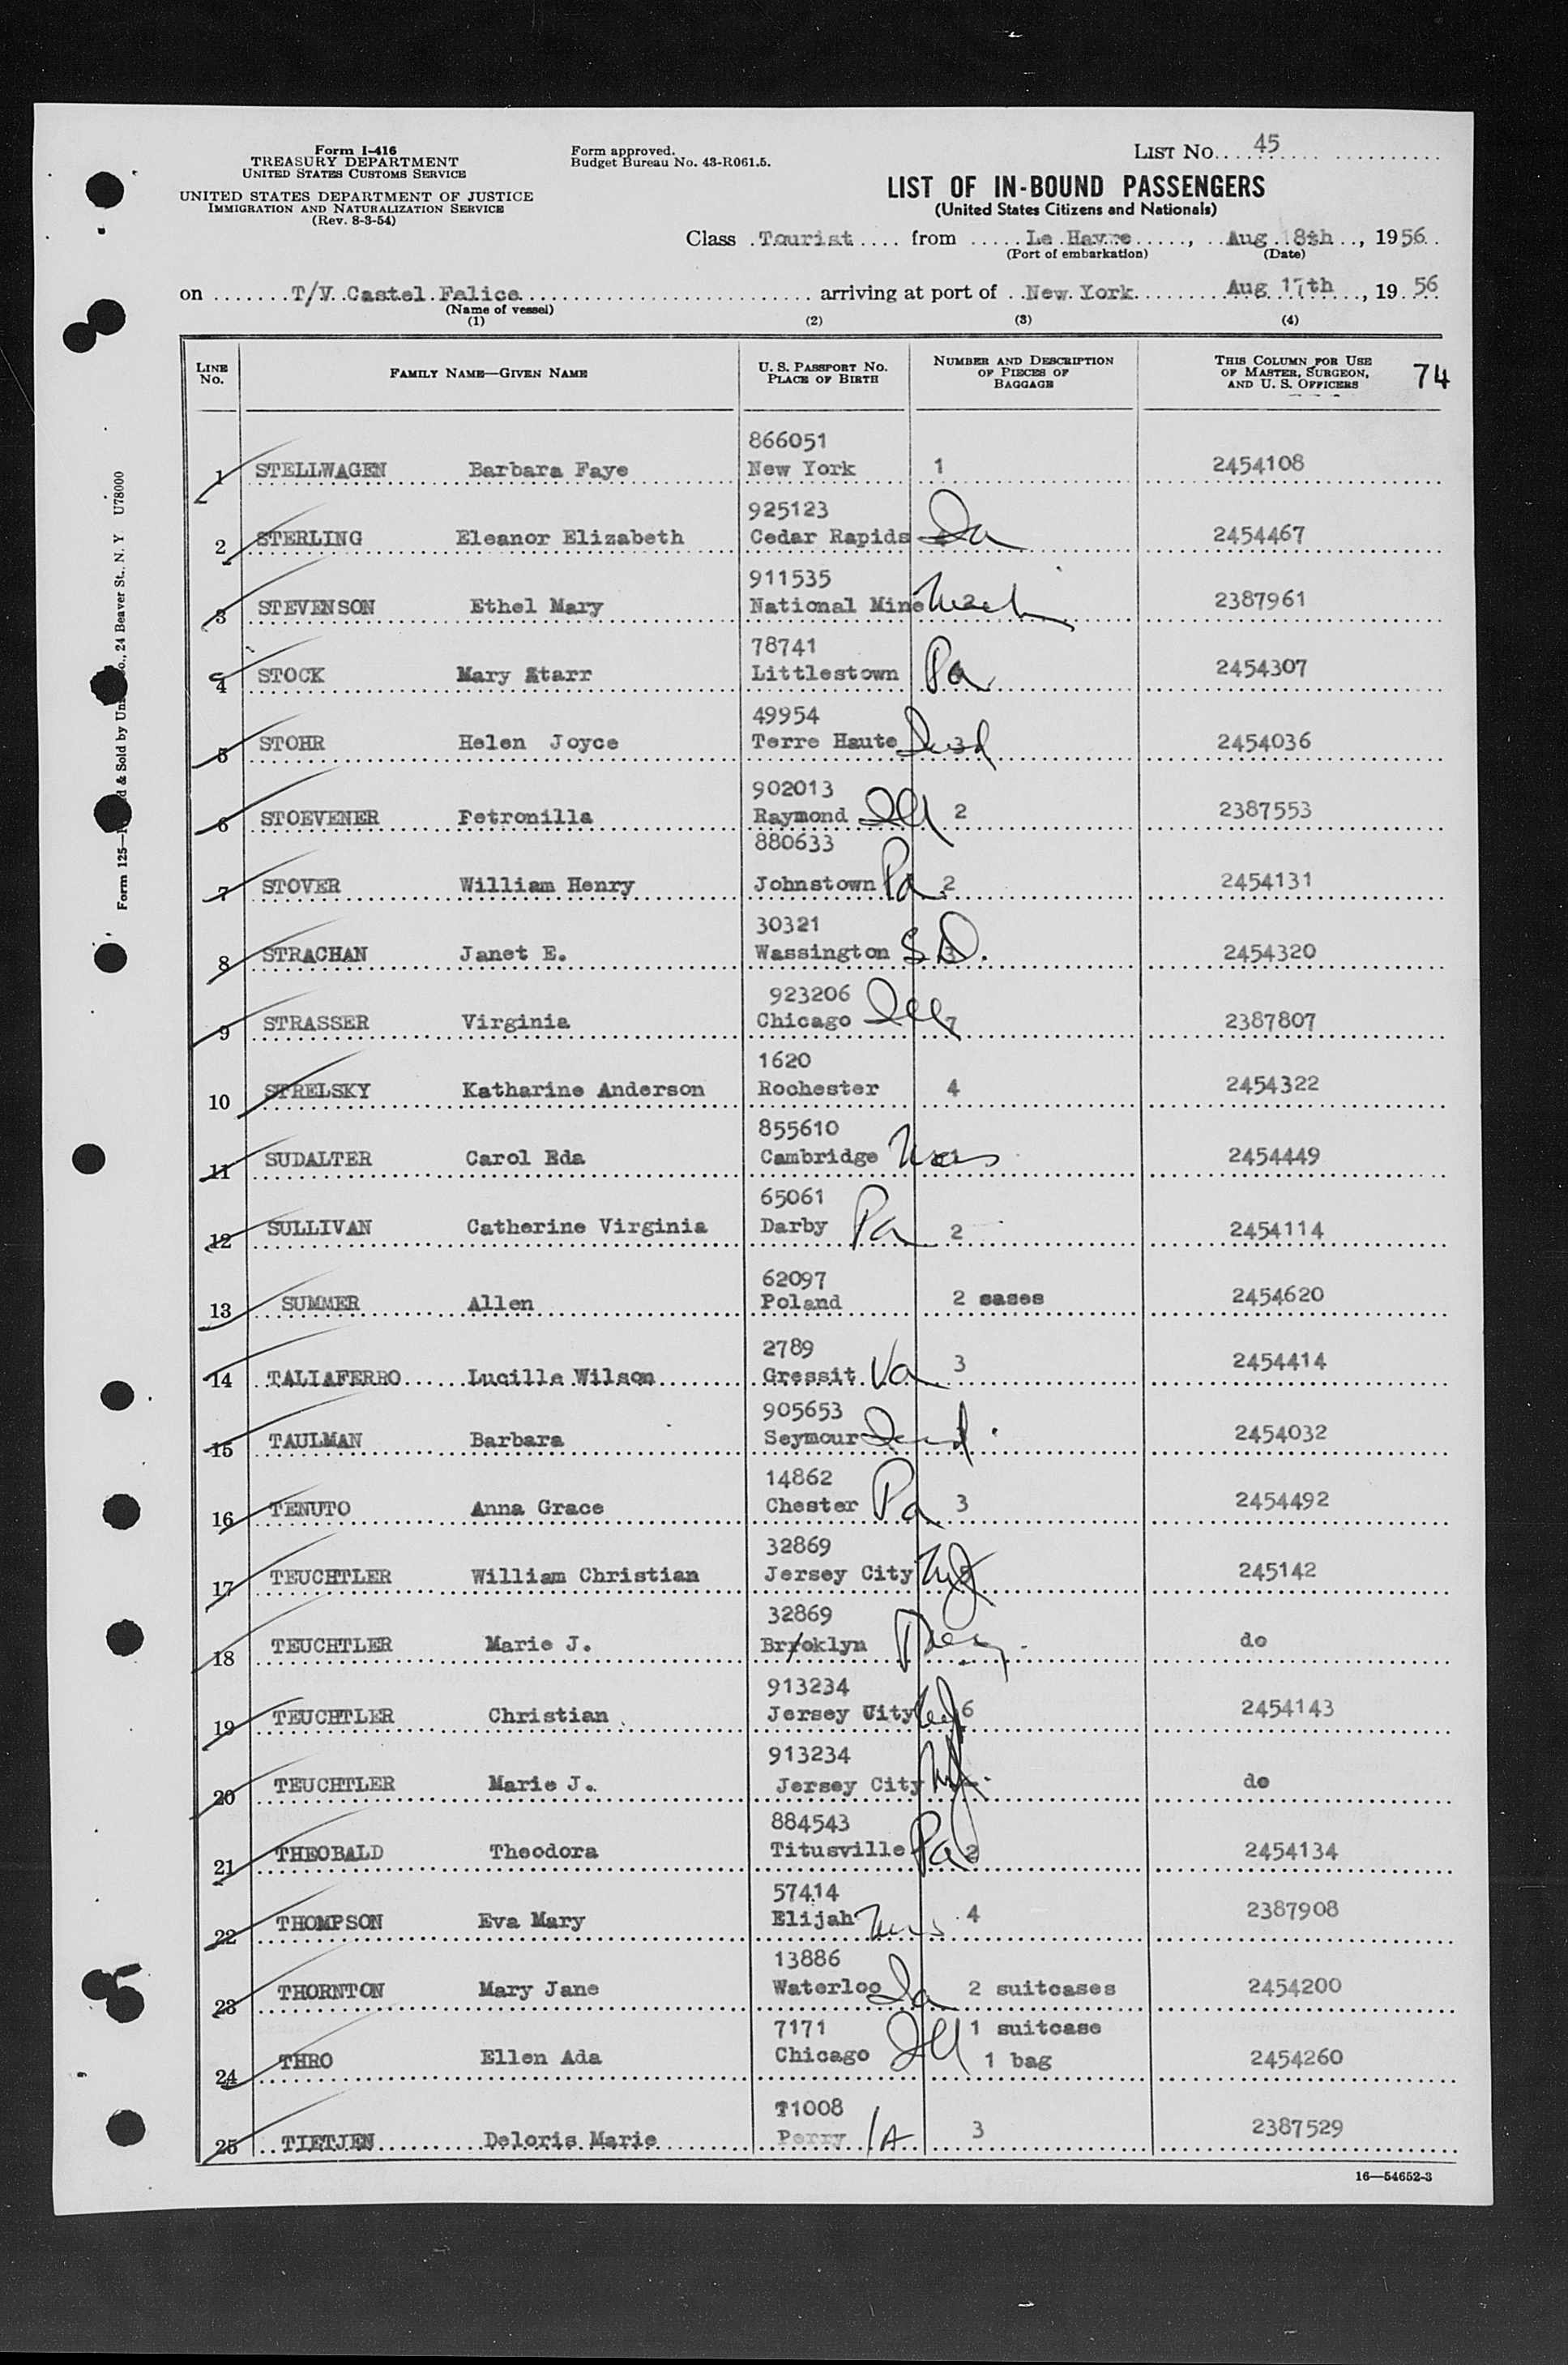 Form I-416
TREASURY DEPARTMENT
UNITED STATES CUSTOMS SERVICE
UNITED STATES DEPARTMENT OF JUSTICE
IMMIGRATION AND NATURALIZATION SERVICE
(Rev. 8-3-54)
Form approved.
Budget Bureau No. 43-R061.5.
LIST No. 45
LIST OF IN-BOUND PASSENGERS
(United States Citizens and Nationals)
Class Tourist from Le Havre, Aug 8th, 1956
(Port of embarkation) (Date)
on T/V Castel Felice arriving at port of New York Aug 17th, 1956
(Name of vessel)
(1) (2) (3) (4)
LINE No. FAMILY NAME—GIVEN NAME U. S. PASSPORT NO. PLACE OF BIRTH NUMBER AND DESCRIPTION OF PIECES OF BAGGAGE THIS COLUMN FOR USE OF MASTER, SURGEON, AND U. S. OFFICERS 74
866051
1 STELLWAGEN Barbara Faye New York 1 2454108
925123
2 STERLING Eleanor Elizabeth Cedar Rapids Ia 2454467
911535
3 STEVENSON Ethel Mary National Mine Mich 2387961
78741
4 STOCK Mary Starr Littlestown Pa 2454307
49954
5 STOHR Helen Joyce Terre Haute Ind 3 2454036
902013
6 STOEVENER Petronilla Raymond Ill 2 2387553
880633
7 STOVER William Henry Johnstown Pa 2 2454131
30321
8 STRACHAN Janet E. Wassington S.D. 2454320
923206
9 STRASSER Virginia Chicago Ill 7 2387807
1620
10 STRELSKY Katharine Anderson Rochester 4 2454322
855610
11 SUDALTER Carol Eda Cambridge Mas 2454449
65061
12 SULLIVAN Catherine Virginia Darby Pa 2 2454114
62097
13 SUMMER Allen Poland 2 cases 2454620
2789
14 TALIAFERRO Lucille Wilson Gressit Va 3 2454414
905653
15 TAULMAN Barbara Seymour Ind 2454032
14862
16 TENUTO Anna Grace Chester Pa 3 2454492
32869
17 TEUCHTLER William Christian Jersey City NJ 245142
32869
18 TEUCHTLER Marie J. Brroklyn do
913234
19 TEUCHTLER Christian Jersey City NJ 6 2454143
913234
20 TEUCHTLER Marie J. Jersey City NJ do
884543
21 THEOBALD Theodora Titusville Pa 2 2454134
57414
22 THOMPSON Eva Mary Elijah 4 2387908
13886
23 THORNTON Mary Jane Waterloo Ia 2 suitcases 2454200
7171 1 suitcase
24 THRO Ellen Ada Chicago Ill 1 bag 2454260
T1008
25 TIETJEN Deloris Marie Perry IA 3 2387529
16—54652-3
24 Beaver St., N. Y U78000